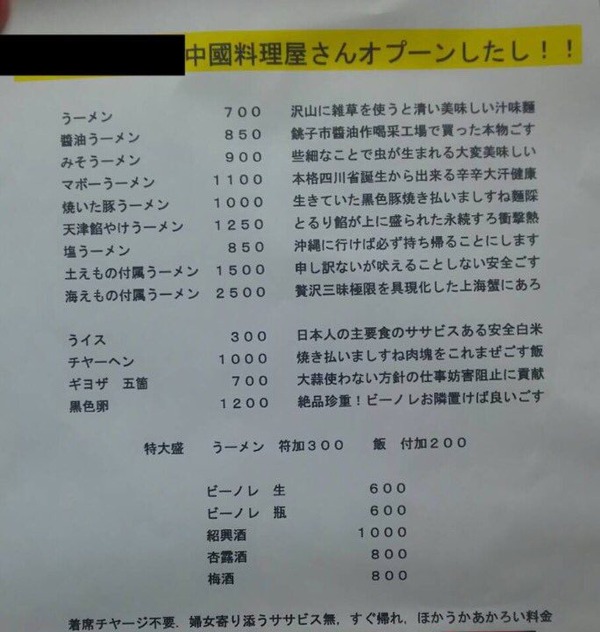 中國料理屋さんオプーンしたし！！
うーメン　７００　沢山に雑草を使うと清い美味しい汁味麵
醬油うーメン　８５０　銚子市醬油作喝采工場で買った本物ごす
みそうーメン　９００　些細なことで虫が生まれる大変美味しい
マボーうーメン　１１００　本格四川省誕生から出来る辛辛大汗健康
焼いた豚うーメン　１０００　生きていた黒色豚焼き払いましすね麵隊
天津餡やけうーメン　１２５０　とるり餡が上に盛られた永続すろ衝撃熱
塩うーメン　８５０　沖縄に行けば必ず持ち帰ることにします
土えもの付属うーメン　１５００　申し訳ないが吠えることしない安全ごす
海えもの付属うーメン　２５００　贅沢三昧極限を具現化した上海蟹にあろ
うイス　３００　日本人の主要食のササビスある安全白米
チヤーヘン　１０００　焼き払いましすね肉塊をこれまぜごす飯
ギヨザ　五箇　７００　大蒜使わない方針の仕事妨害阻止に貢献
黒色卵　１２００　絶品珍重！ビーノレお隣置けば良いごす
特大盛　うーメン　符加３００　飯　付加２００
ビーノレ　生　６００
ビーノレ　瓶　６００
紹興酒　１０００
杏露酒　８００
梅酒　８００
着席チヤージ不要．婦女寄り添うササビス無，すぐ帰れ，ほかうかあかろい料金